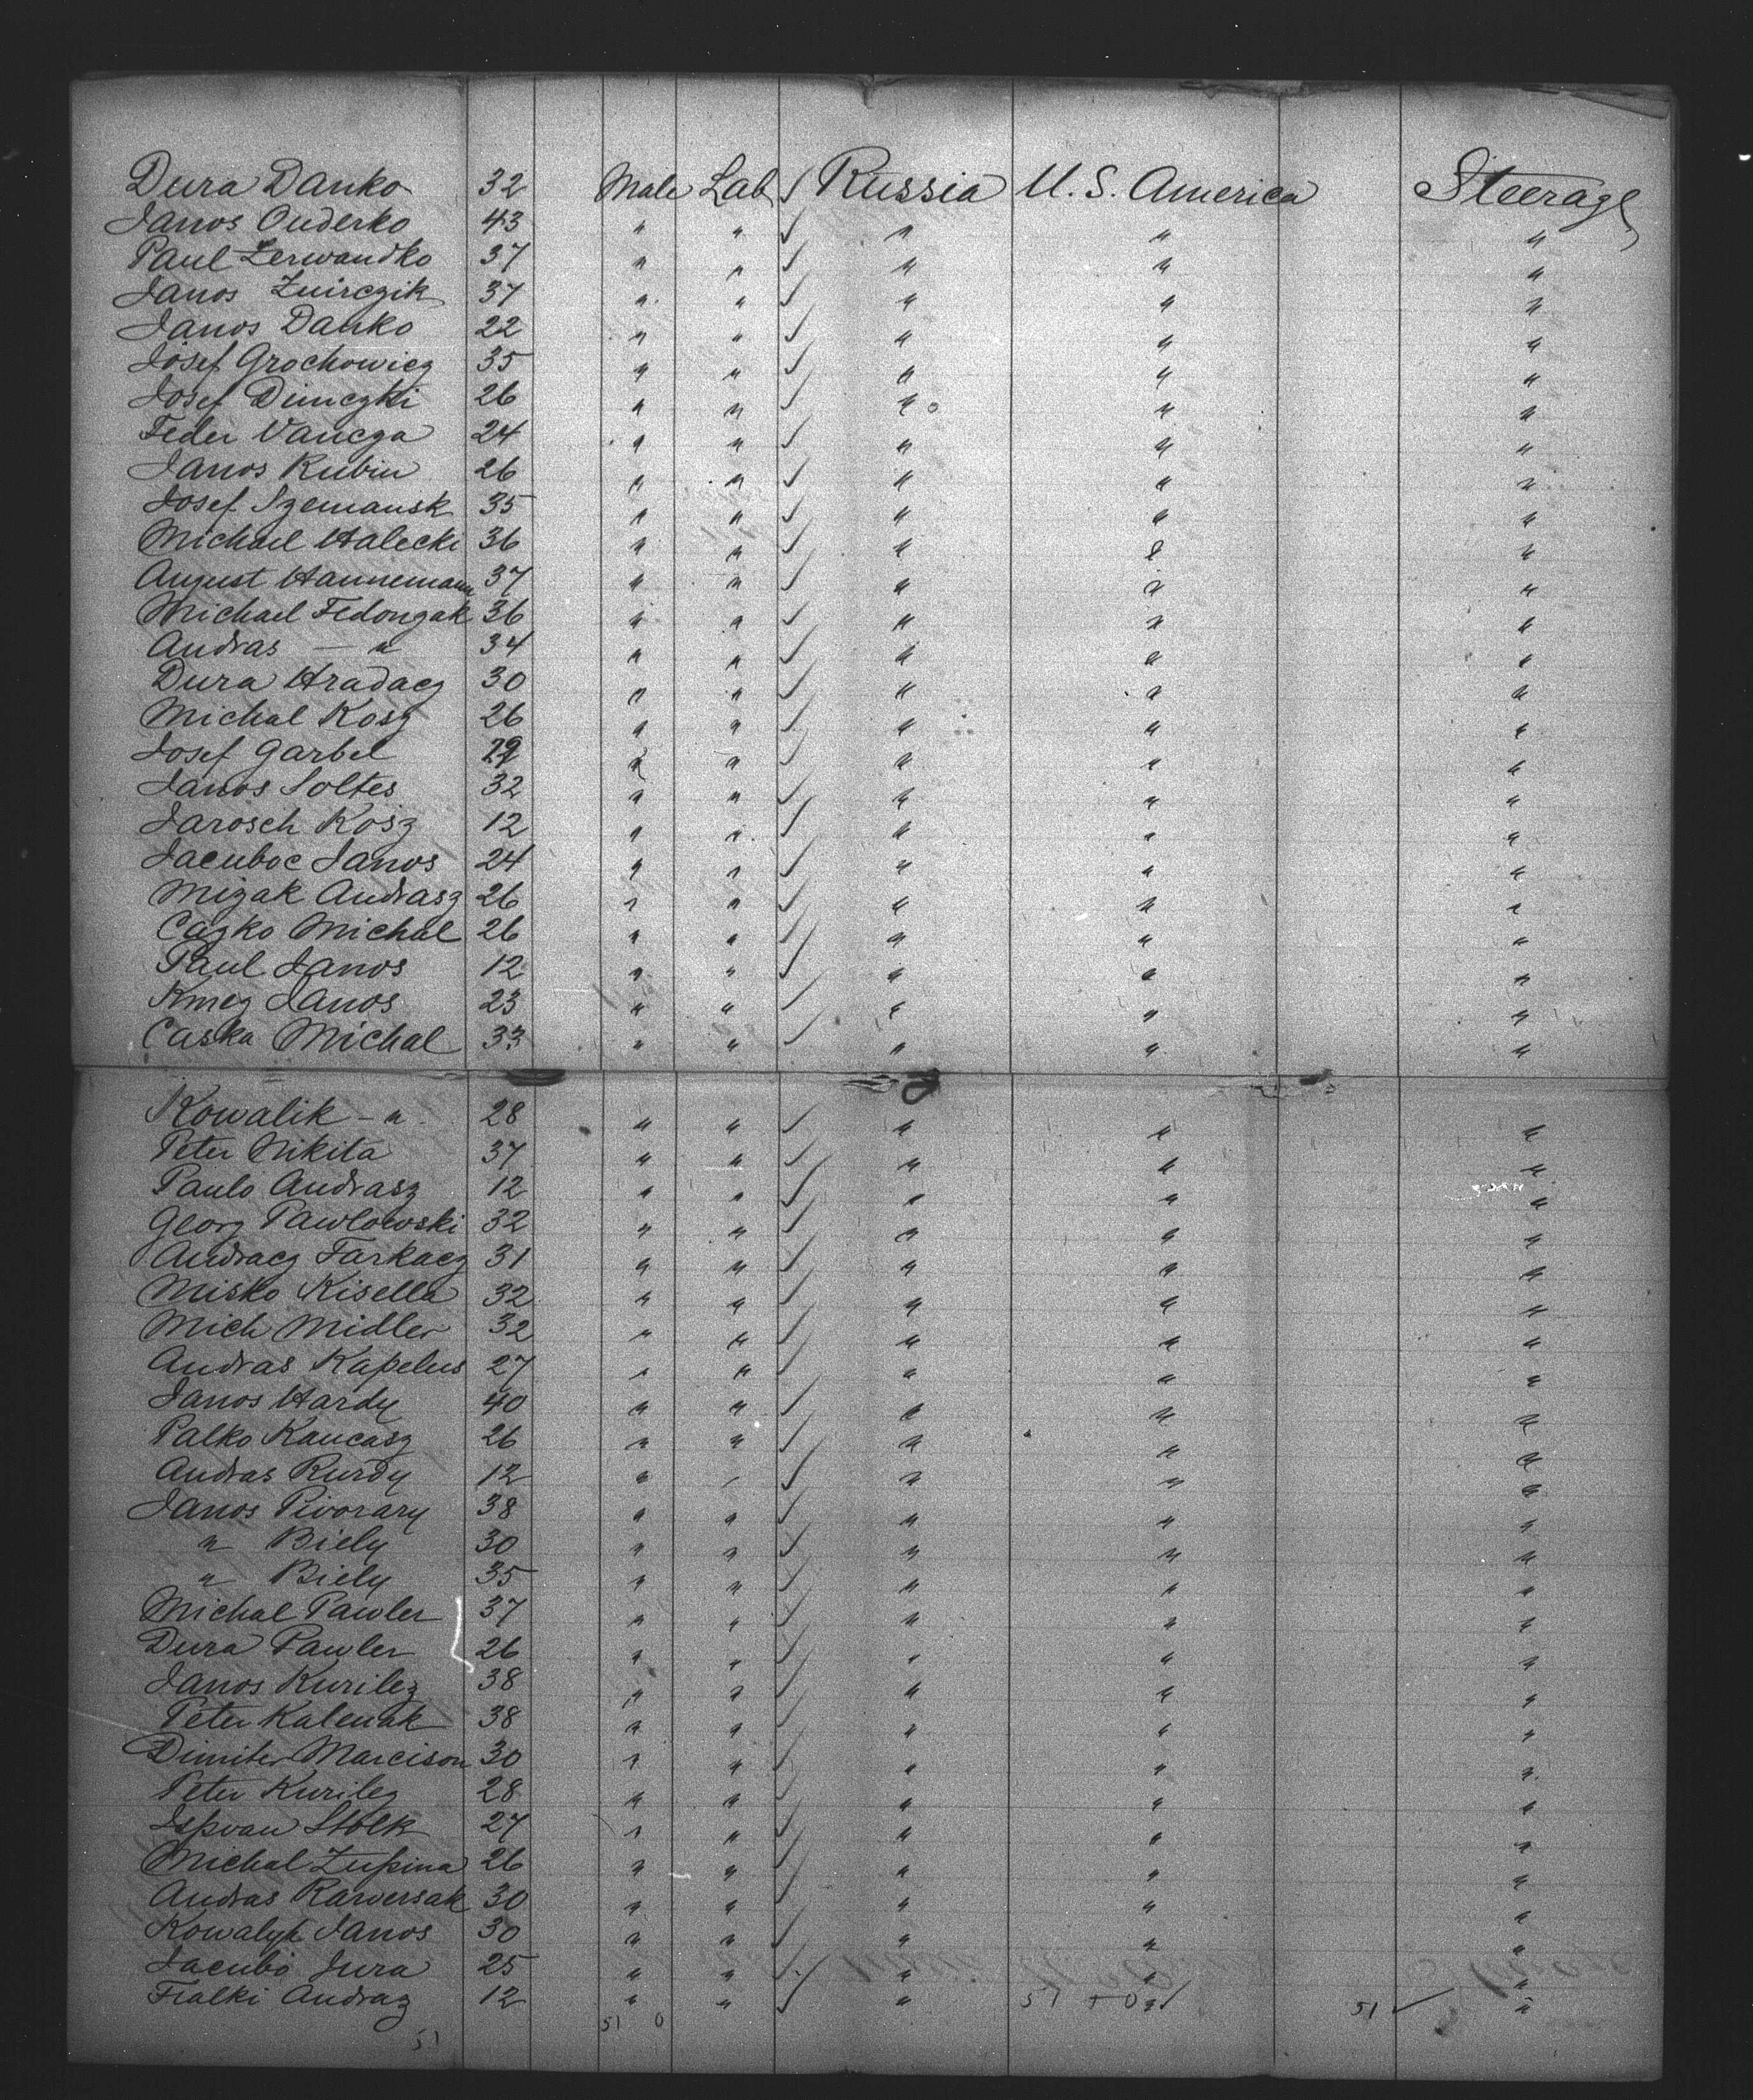 Dura Danko 32 Male Lab ✓ Russia U.S. America Steerage
Janos Onderko 43 " " ✓ " " "
Paul Zerwandko 37 " " ✓ " " "
Janos Zuirczik 37 " " ✓ " " "
Janos Danko 22 " " ✓ " " "
Josef Grochowicz 35 " " ✓ " " "
Josef Dimczki 26 " " ✓ " " "
Feder Vancza 24 " " ✓ " " "
Janos Rubin 26 " " ✓ " " "
Josef Szemansk 35 " " ✓ " " "
Michael Halecki 36 " " ✓ " " "
August Hannemann 37 " " ✓ " " "
Michael Fedonzak 36 " " ✓ " " "
Andras — " 34 " " ✓ " " "
Dura Hradacz 30 " " ✓ " " "
Michal Kosz 26 " " ✓ " " "
Josef Garbel 29 " " ✓ " " "
Janos Soltes 32 " " ✓ " " "
Jarosch Kosz 12 " " ✓ " " "
Jacuboc Janos 24 " " ✓ " " "
Mizak Andrasz 26 " " ✓ " " "
Cazko Michal 26 " " ✓ " " "
Paul Janos 12 " " ✓ " " "
Kmez Janos 23 " " ✓ " " "
Caska Michal 33 " " ✓ " " "
Kowalik - " 28 " " ✓ " " "
Peter Nikita 37 " " ✓ " " "
Paulo Andrasz 12 " " ✓ " " "
Georg Pawlowski 32 " " ✓ " " "
Andracz Farkacz 31 " " ✓ " " "
Misko Kisella 32 " " ✓ " " "
Mich Midler 32 " " ✓ " " "
Andras Kapelus 27 " " ✓ " " "
Janos Hardy 40 " " ✓ " " "
Palko Kancasz 26 " " ✓ " " "
Andras Rurdy 12 " " ✓ " " "
Janos Pivorary 38 " " ✓ " " "
" Biely 30 " " ✓ " " "
" Biely 35 " " ✓ " " "
Michal Pawler 37 " " ✓ " " "
Dura Pawler 26 " " ✓ " " "
Janos Kurilez 38 " " ✓ " " "
Peter Kalenak 38 " " ✓ " " "
Dimiter Marcison 30 " " ✓ " " "
Peter Kurilez 28 " " ✓ " " "
Ispvan Stolk 27 " " ✓ " " "
Michal Zupina 26 " " ✓ " " "
Andras Rawersak 30 " " ✓ " " "
Kowalyk Janos 30 " " ✓ " " "
Jacubo Jura 25 " " ✓ " " "
Fialki Andraz 12 " " ✓ " 51 + 0 " ✓ 51 ✓ "
51 51 0